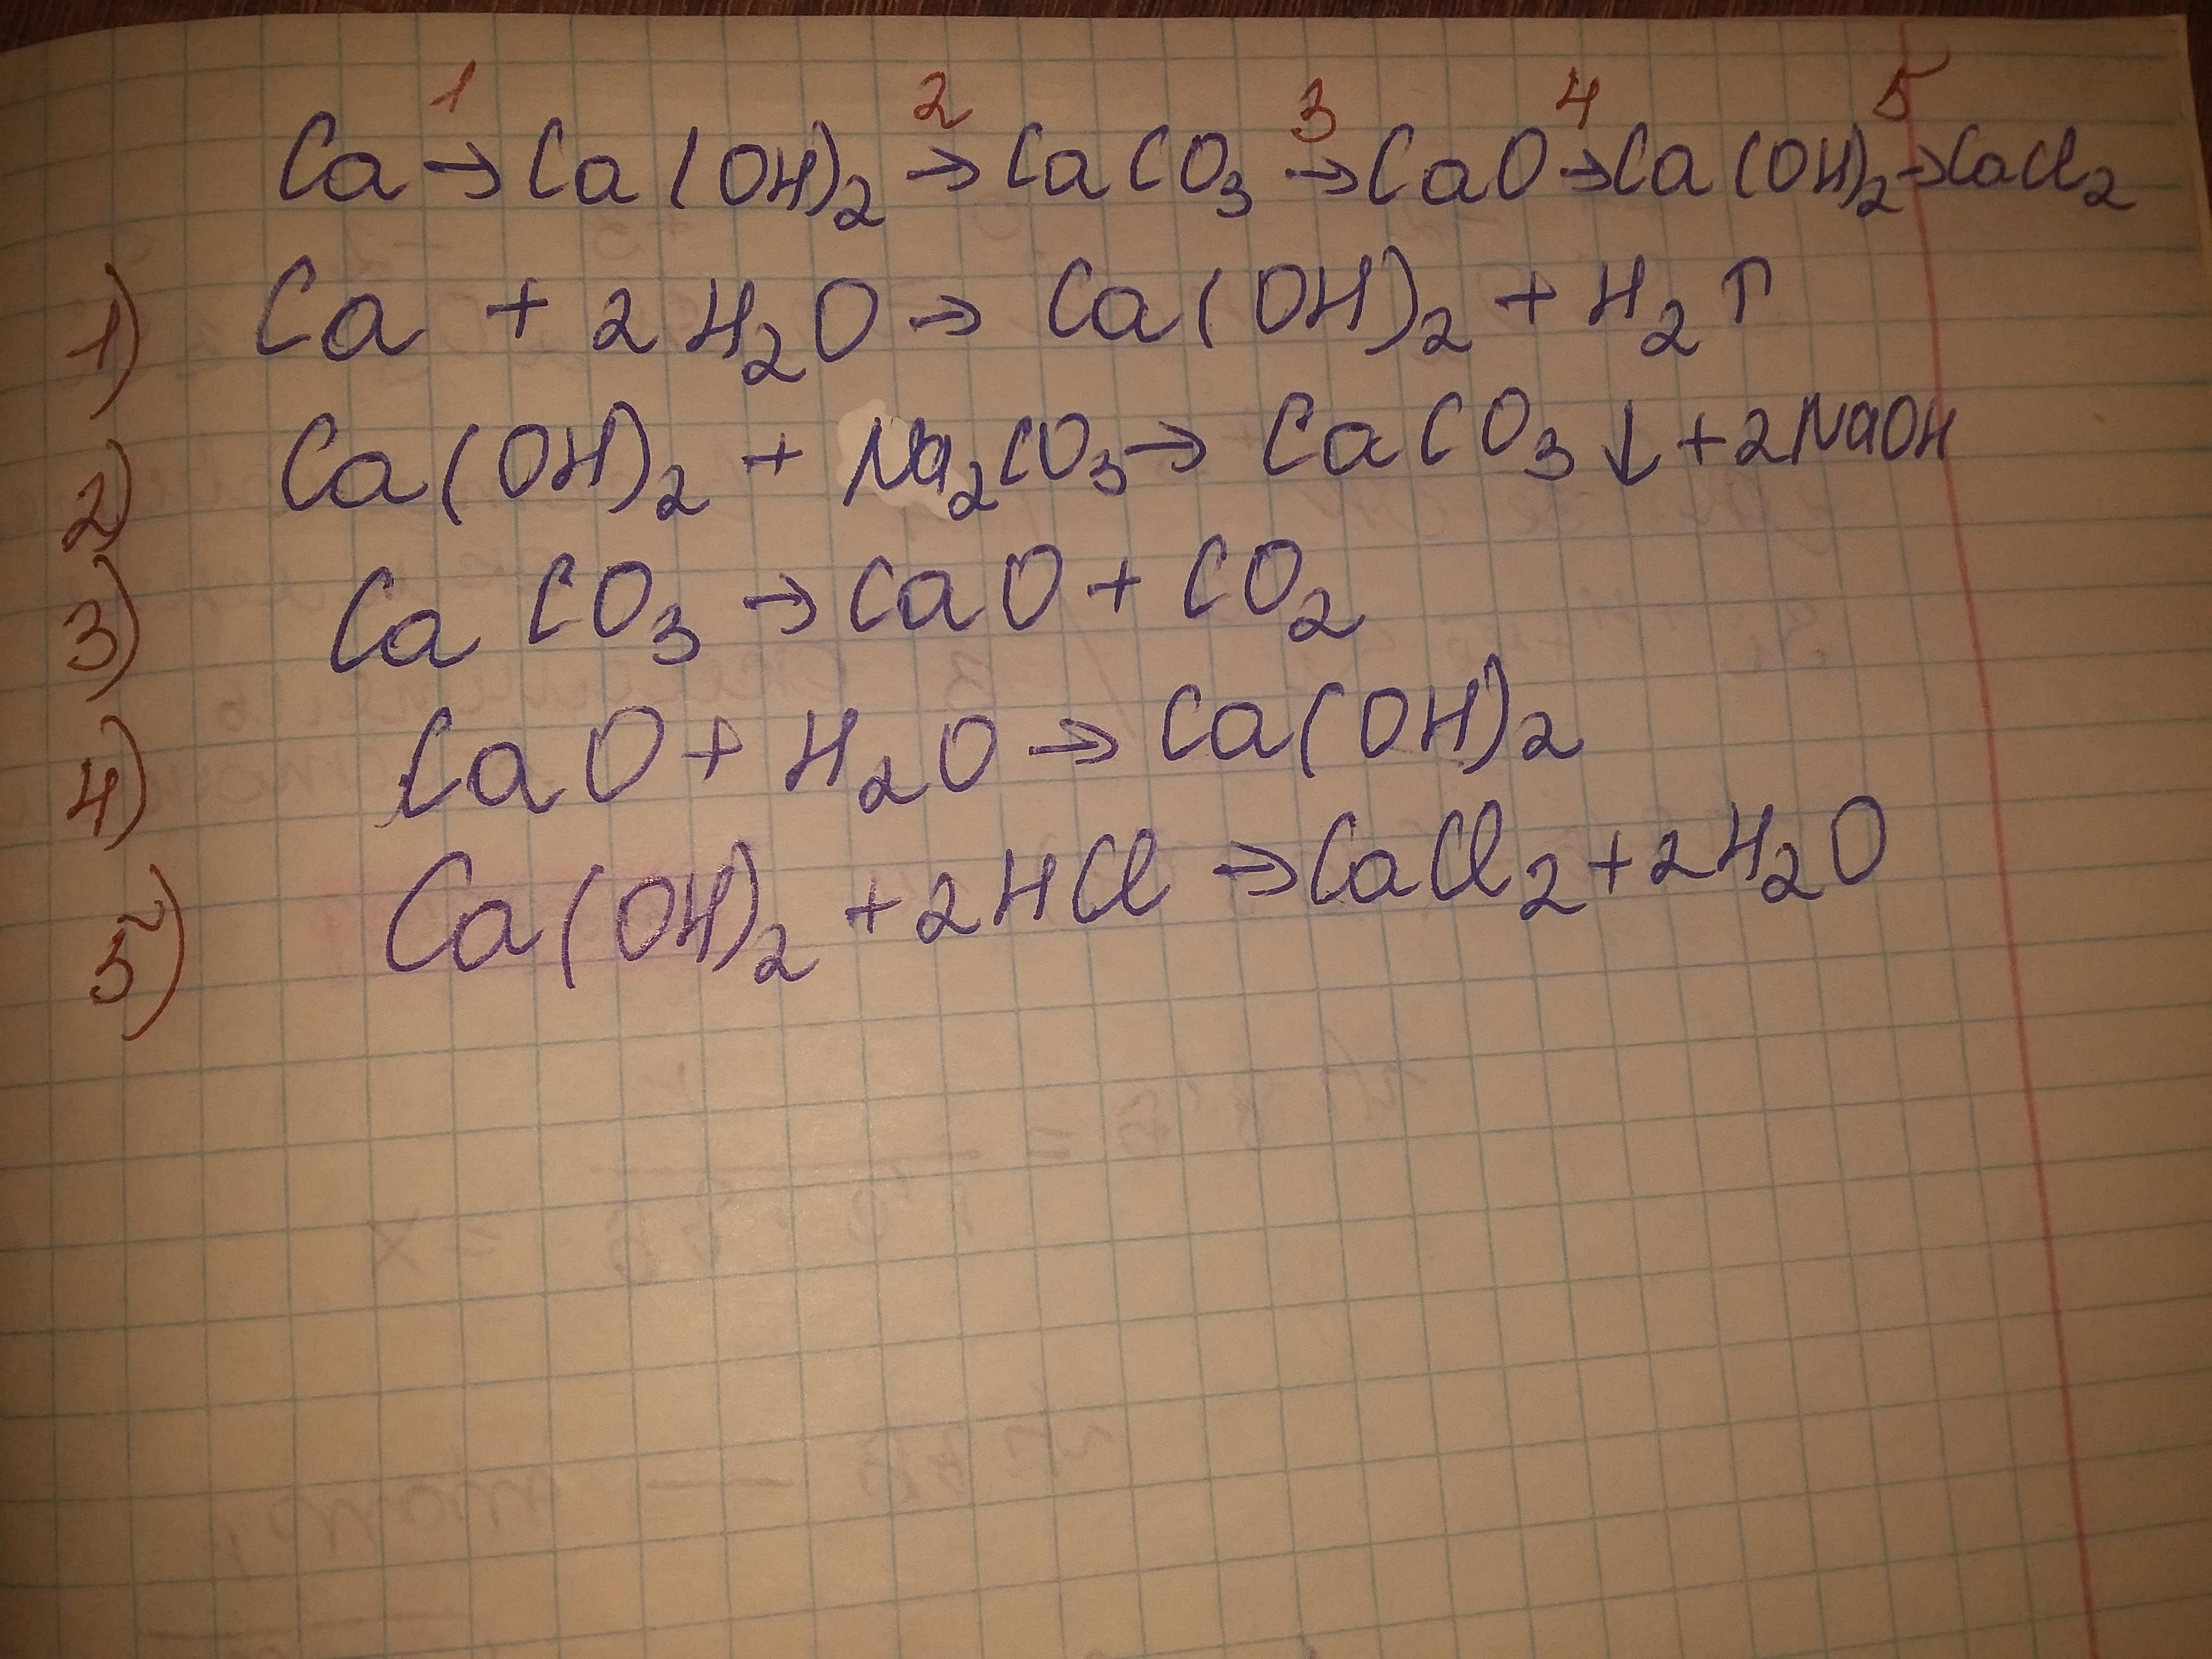 1 2 3 4 5
Ca → Ca(OH)₂ → CaCO₃ → CaO → Ca(OH)₂ → CaCl₂
1) Ca + 2H₂O → Ca(OH)₂ + H₂↑
2) Ca(OH)₂ + Na₂CO₃ → CaCO₃↓ + 2NaOH
3) CaCO₃ → CaO + CO₂
4) CaO + H₂O → Ca(OH)₂
5) Ca(OH)₂ + 2HCl → CaCl₂ + 2H₂O